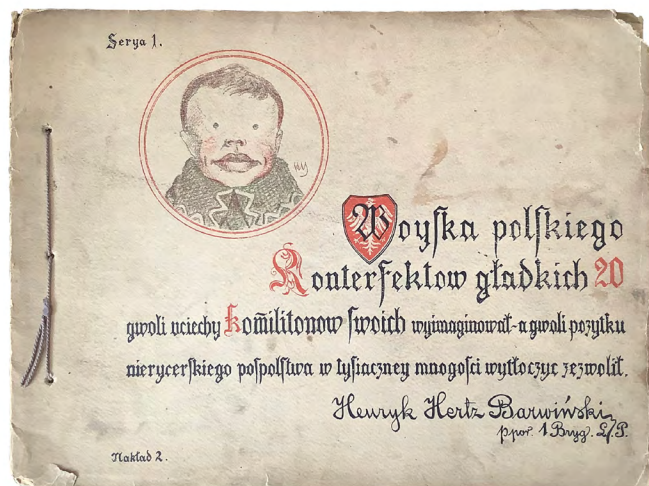 Serya 1.
Woyſka polſkiego
Konterfektow gładkich 20
gwoli uciechy kom̃ilitonow ſwoich wyimaginował-a gwoli pozytku
nierycerſkiego poſpolſtwa w tyſiaczney mnogoſci wytłoczyc zezwolił.
Henryk Hertz Barwiński
ppor. 1 Bryg. L/P.
Nakład 2.